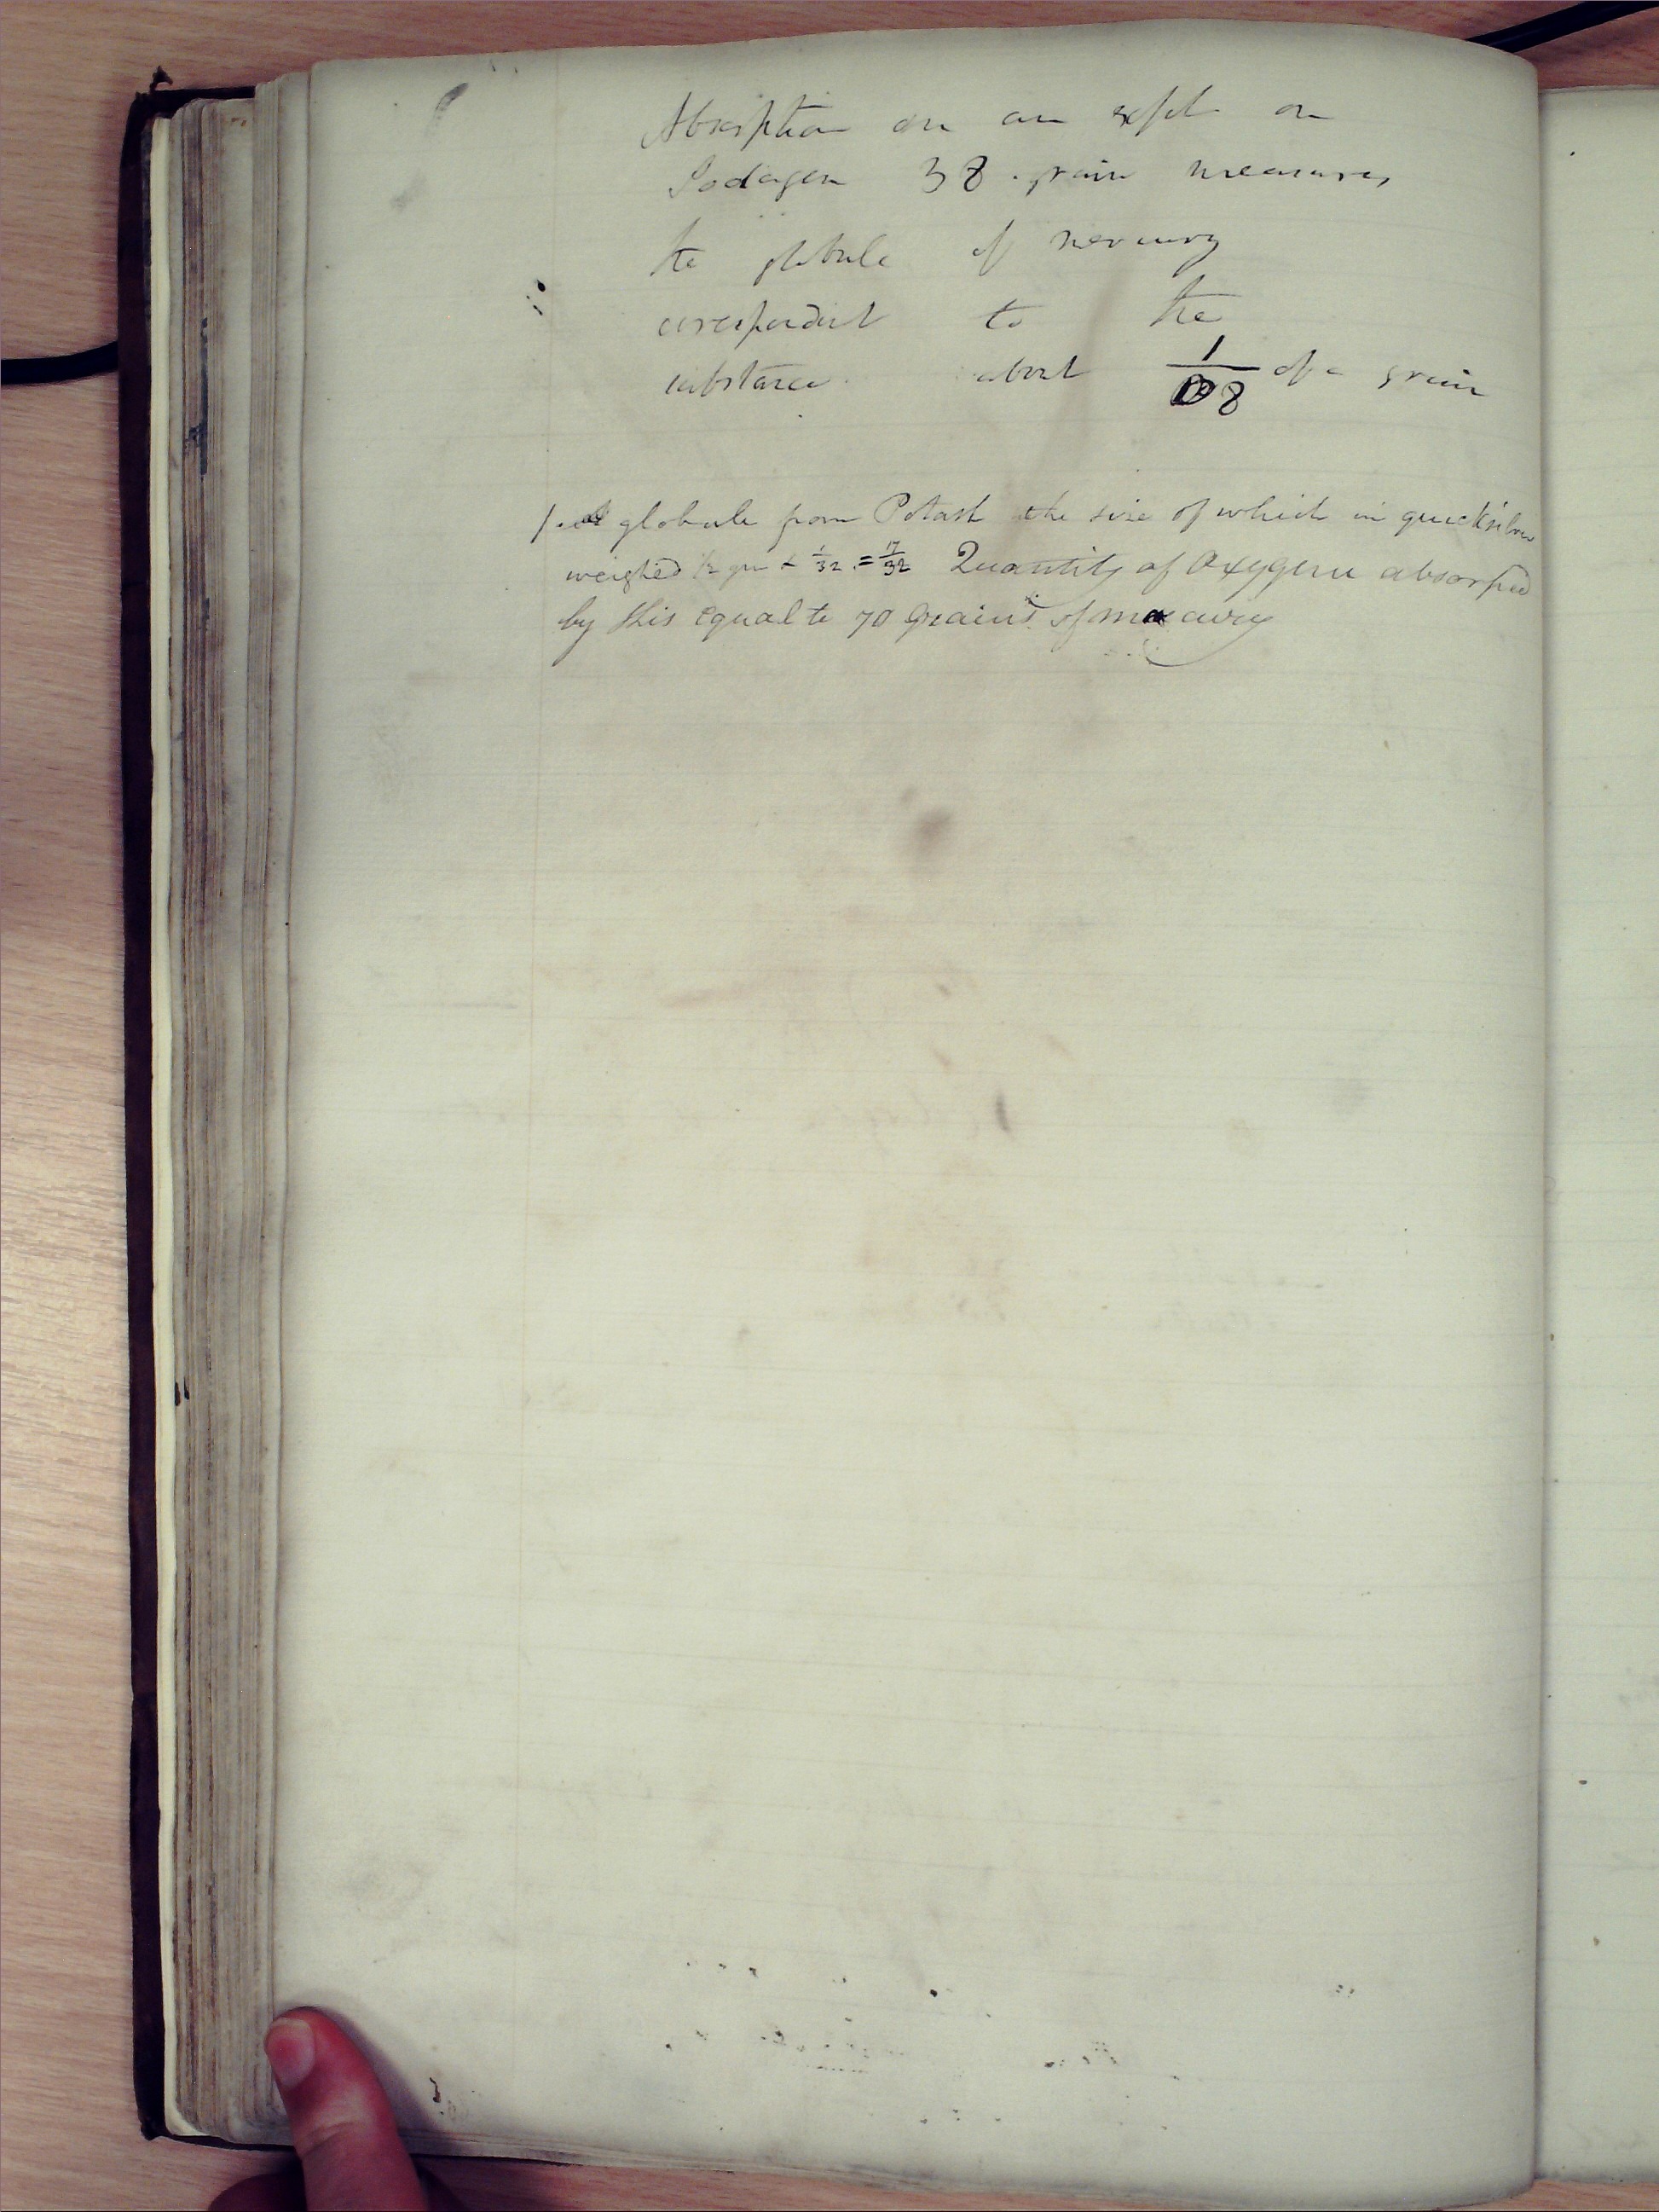 Absorption on an expt on
Sodagen 38 grain measures
the globule of mercury
correspondent to the
substance about 1/108 of a grain
1. A globule from Potash the size of which in quicksilver
weighed 1/2 grn + 1/32 = 17/32 Quantity of Oxygene absorped
by this equal to 70 Grains of mercury